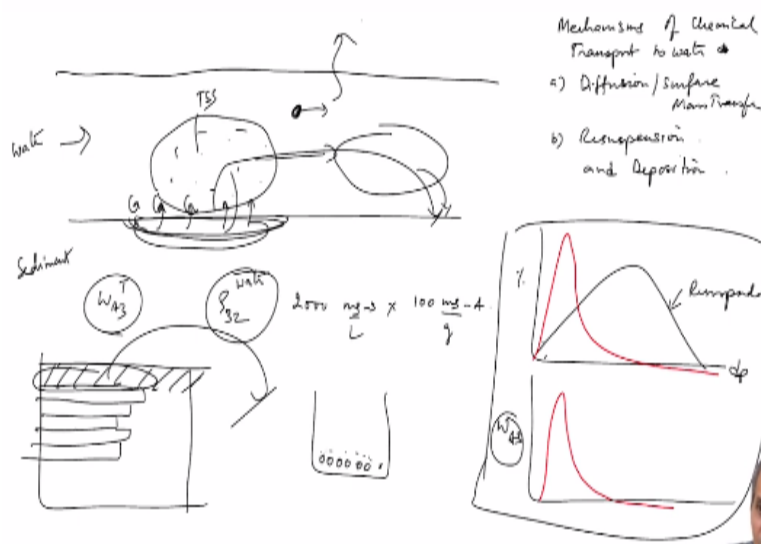 Mechanisms of Chemical
Transport to water
a) Diffusion/surface
Mass Transfer
b) Resuspension
and Deposition
TSS
water
Sediment
W_A3^T
ρ_32^water
2000 mg-3/L × 100 mg-A/g
%
dp
W_A3